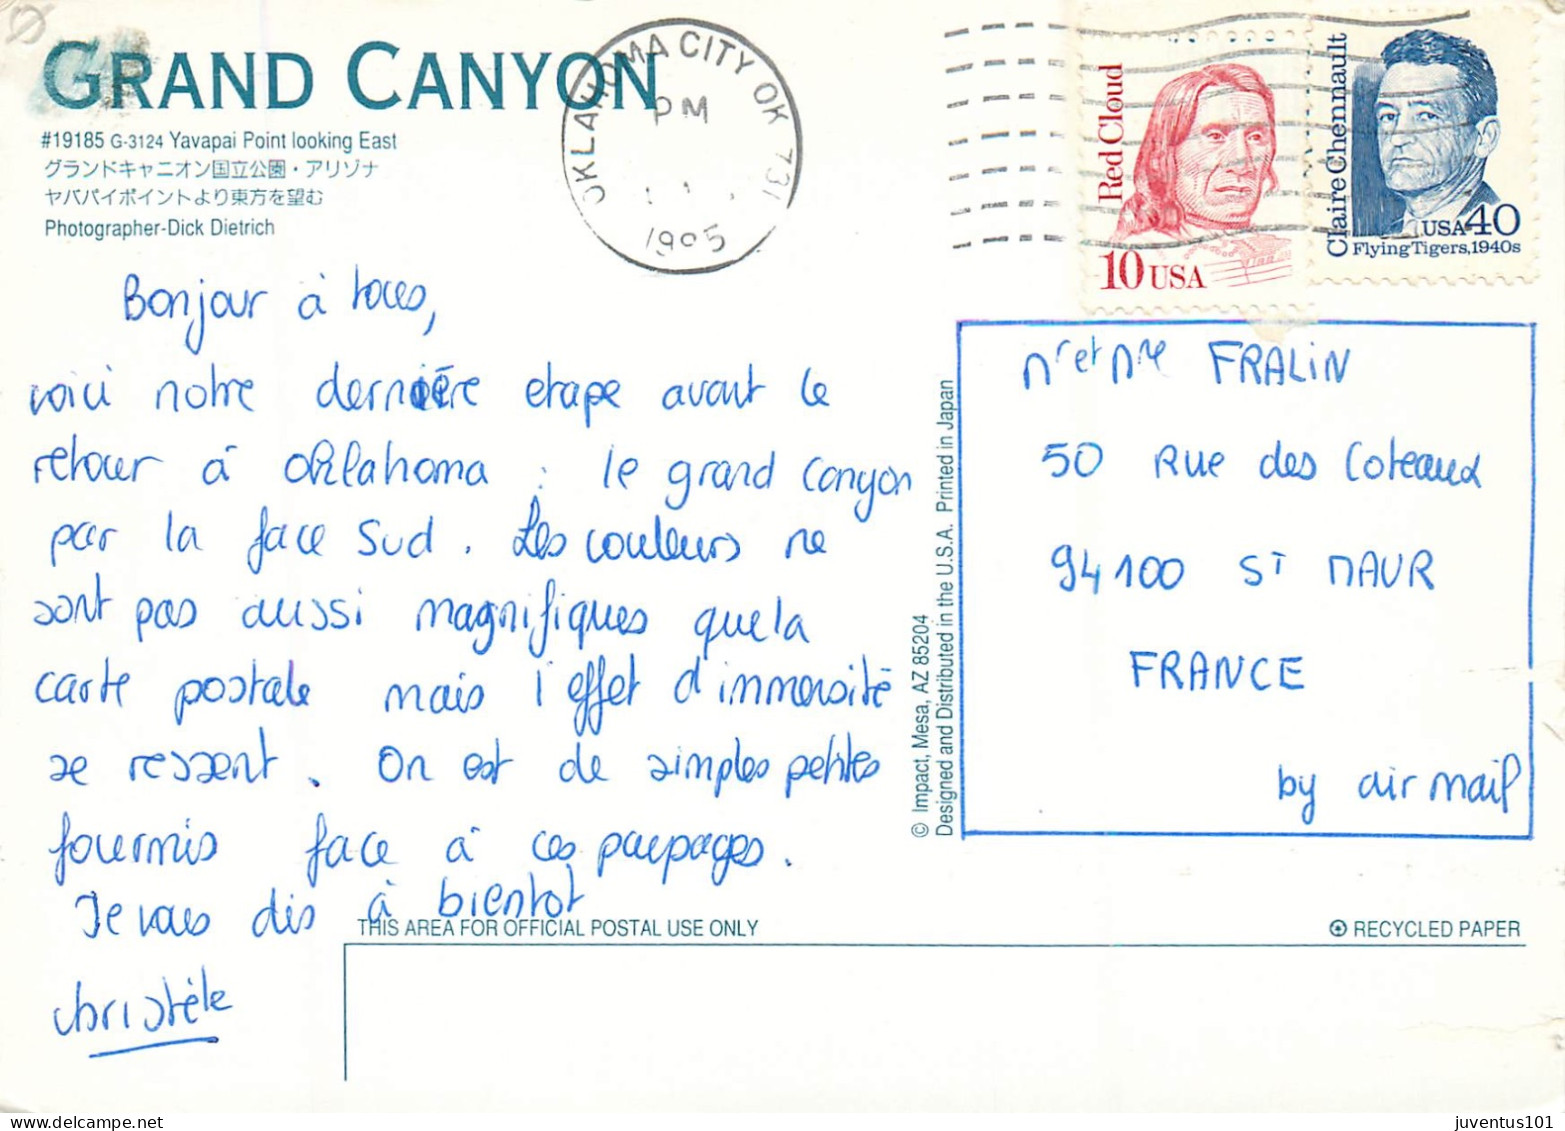 GRAND CANYON
#19185 G-3124 Yavapai Point looking East
グランドキャニオン国立公園・アリゾナ
ヤバパイポイントより東方を望む
Photographer-Dick Dietrich
OKLAHOMA CITY OK 731
PM
1995
Red Cloud
10 USA
Claire Chennault
USA 40
Flying Tigers, 1940s
Bonjour à tous,
voici notre dernière etape avant le
retour à Oklahoma : le grand canyon
par la face Sud. Les couleurs ne
sont pas aussi magnifiques que la
carte postale mais l'effet d'immensité
se ressent. On est de simples petites
fourmis face à ces paysages.
Je vous dis à bientot
christèle
Mr et Mme FRALIN
50 Rue des Coteaux
94100 ST MAUR
FRANCE
by air mail
© Impact, Mesa, AZ 85204
Designed and Distributed in the U.S.A. Printed in Japan
THIS AREA FOR OFFICIAL POSTAL USE ONLY
RECYCLED PAPER
juventus101